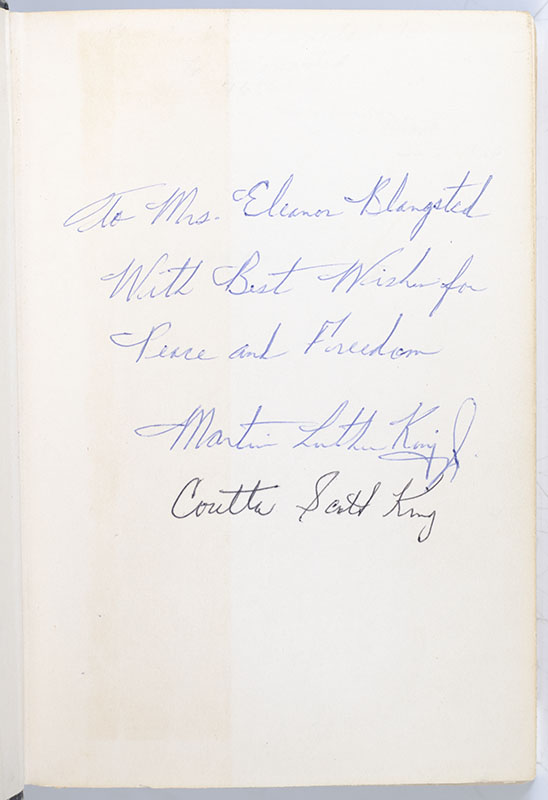 To Mrs. Eleanor Blangsted
With Best Wishes for
Peace and Freedom
Martin Luther King Jr.
Coretta Scott King